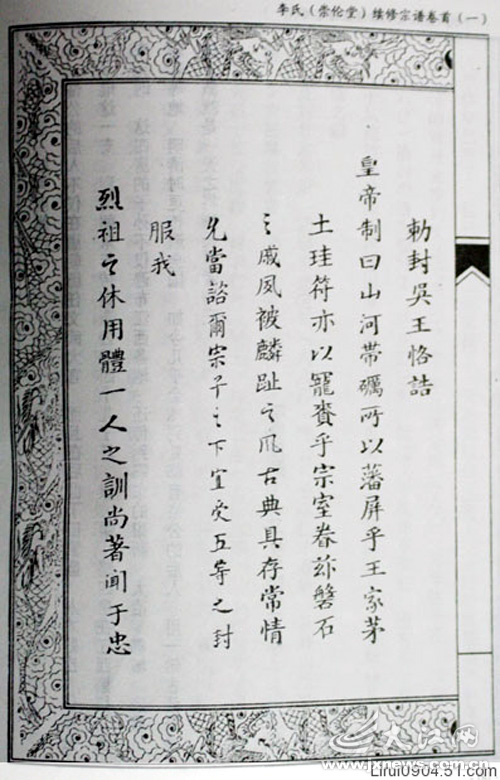 李氏（崇伦堂）续修宗谱卷首（一）
勅封吳王恪誥
皇帝制曰山河帶礪所以藩屏乎王家茅
土珪符亦以寵賚乎宗室眷茲磐石
之戚夙被麟趾之風古典具存常情
允當諮爾宗子之下宜受五等之封
服我
烈祖之休用體一人之訓尚著聞于忠
大江网
www.jxnews.com.cn
Lirui0904.51.com